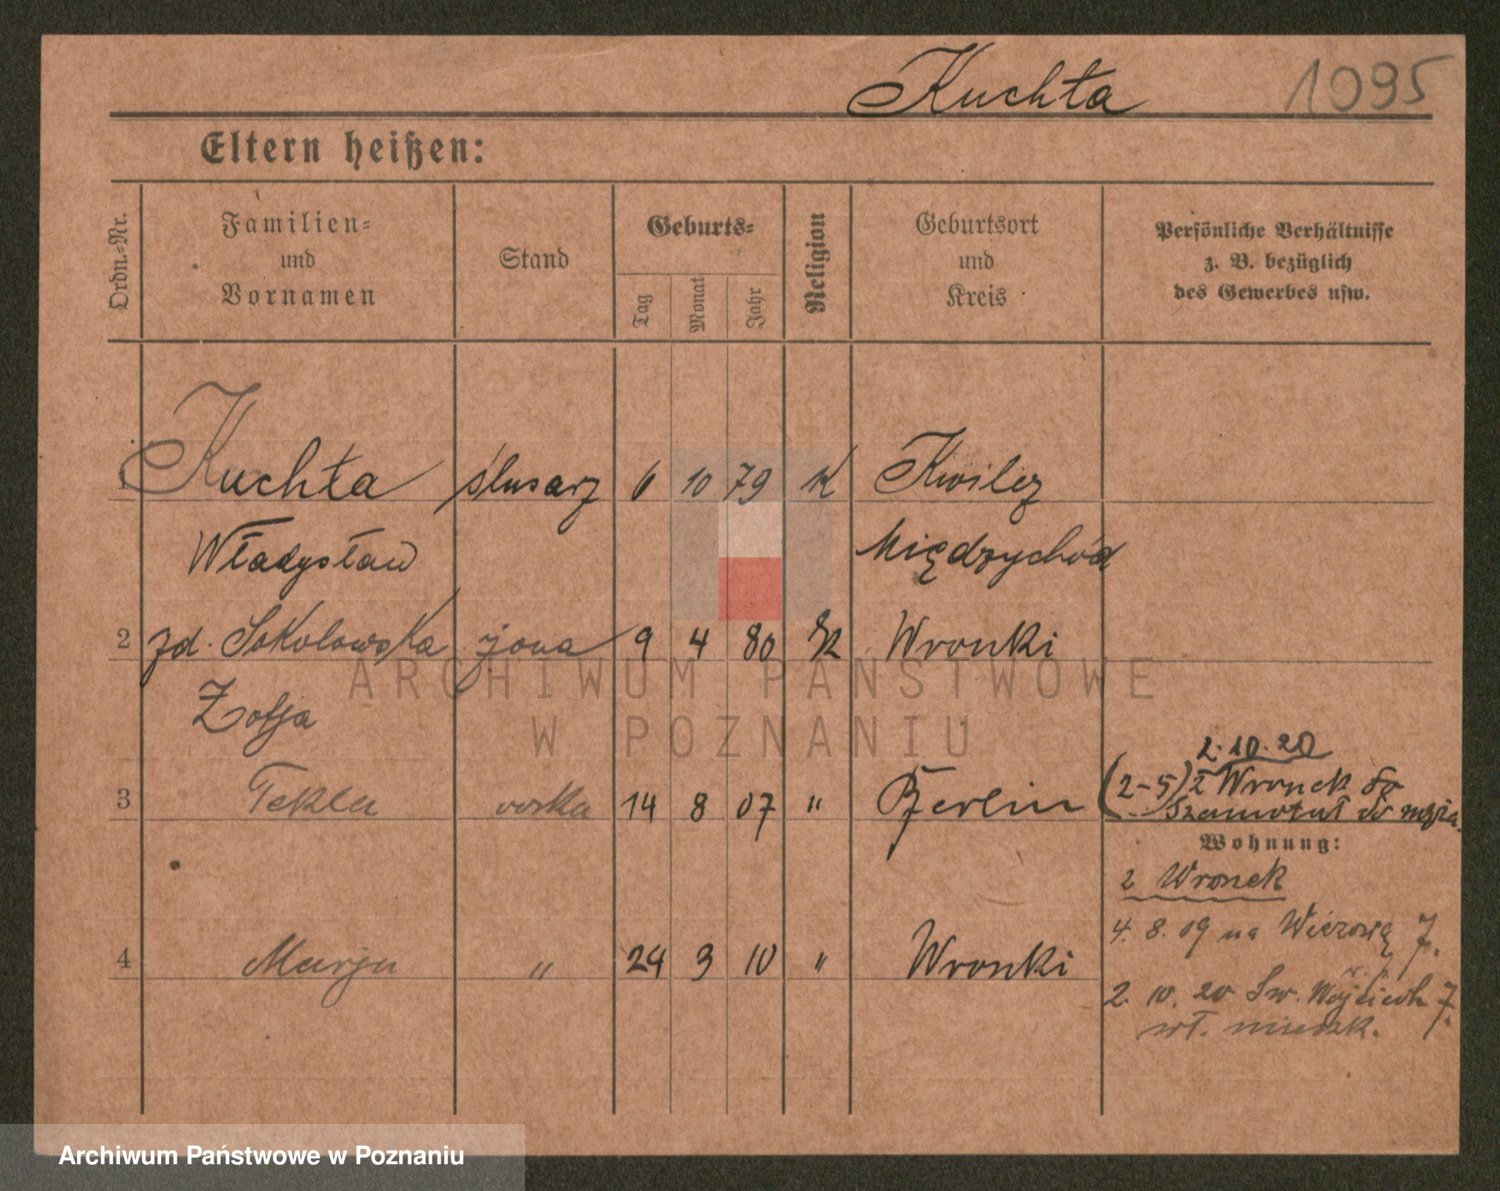 Kuchta 1095
Eltern heißen:
Ordn.-Nr. Familien- und Vornamen Stand Geburts- Tag Monat Jahr Religion Geburtsort und Kreis Persönliche Verhältnisse z. B. bezüglich des Gewerbes usw.
1 Kuchta ślusarz 6 10 79 K Kwilcz
Władysław Międzychód
2 zd. Sokolowska żona 9 4 80 K Wronki
Zofja
ARCHIWUM PAŃSTWOWE
W POZNANIU
2.10.20
3 Tekla corka 14 8 07 " Berlin (2-5) z Wronek do
Szamotuł do męża
Wohnung:
z Wronek
4. 8. 09 na Wieżową 7.
4 Marja " 24 3 10 " Wronki
2. 10. 20 Św. Wojciech 7.
wł. mieszk.
Archiwum Państwowe w Poznaniu